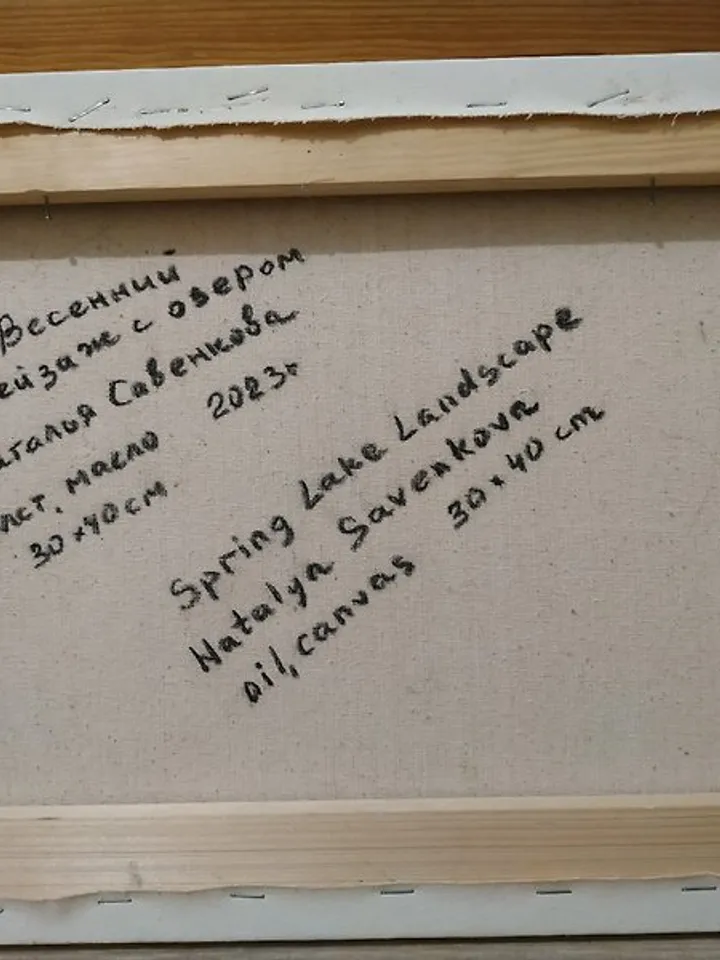 Весенний
ейзаж с озером
аталья Савенкова
лст. масло 2023г
30×40 см
Spring Lake Landscape
Natalya Savenkova
oil, canvas 30×40 cm